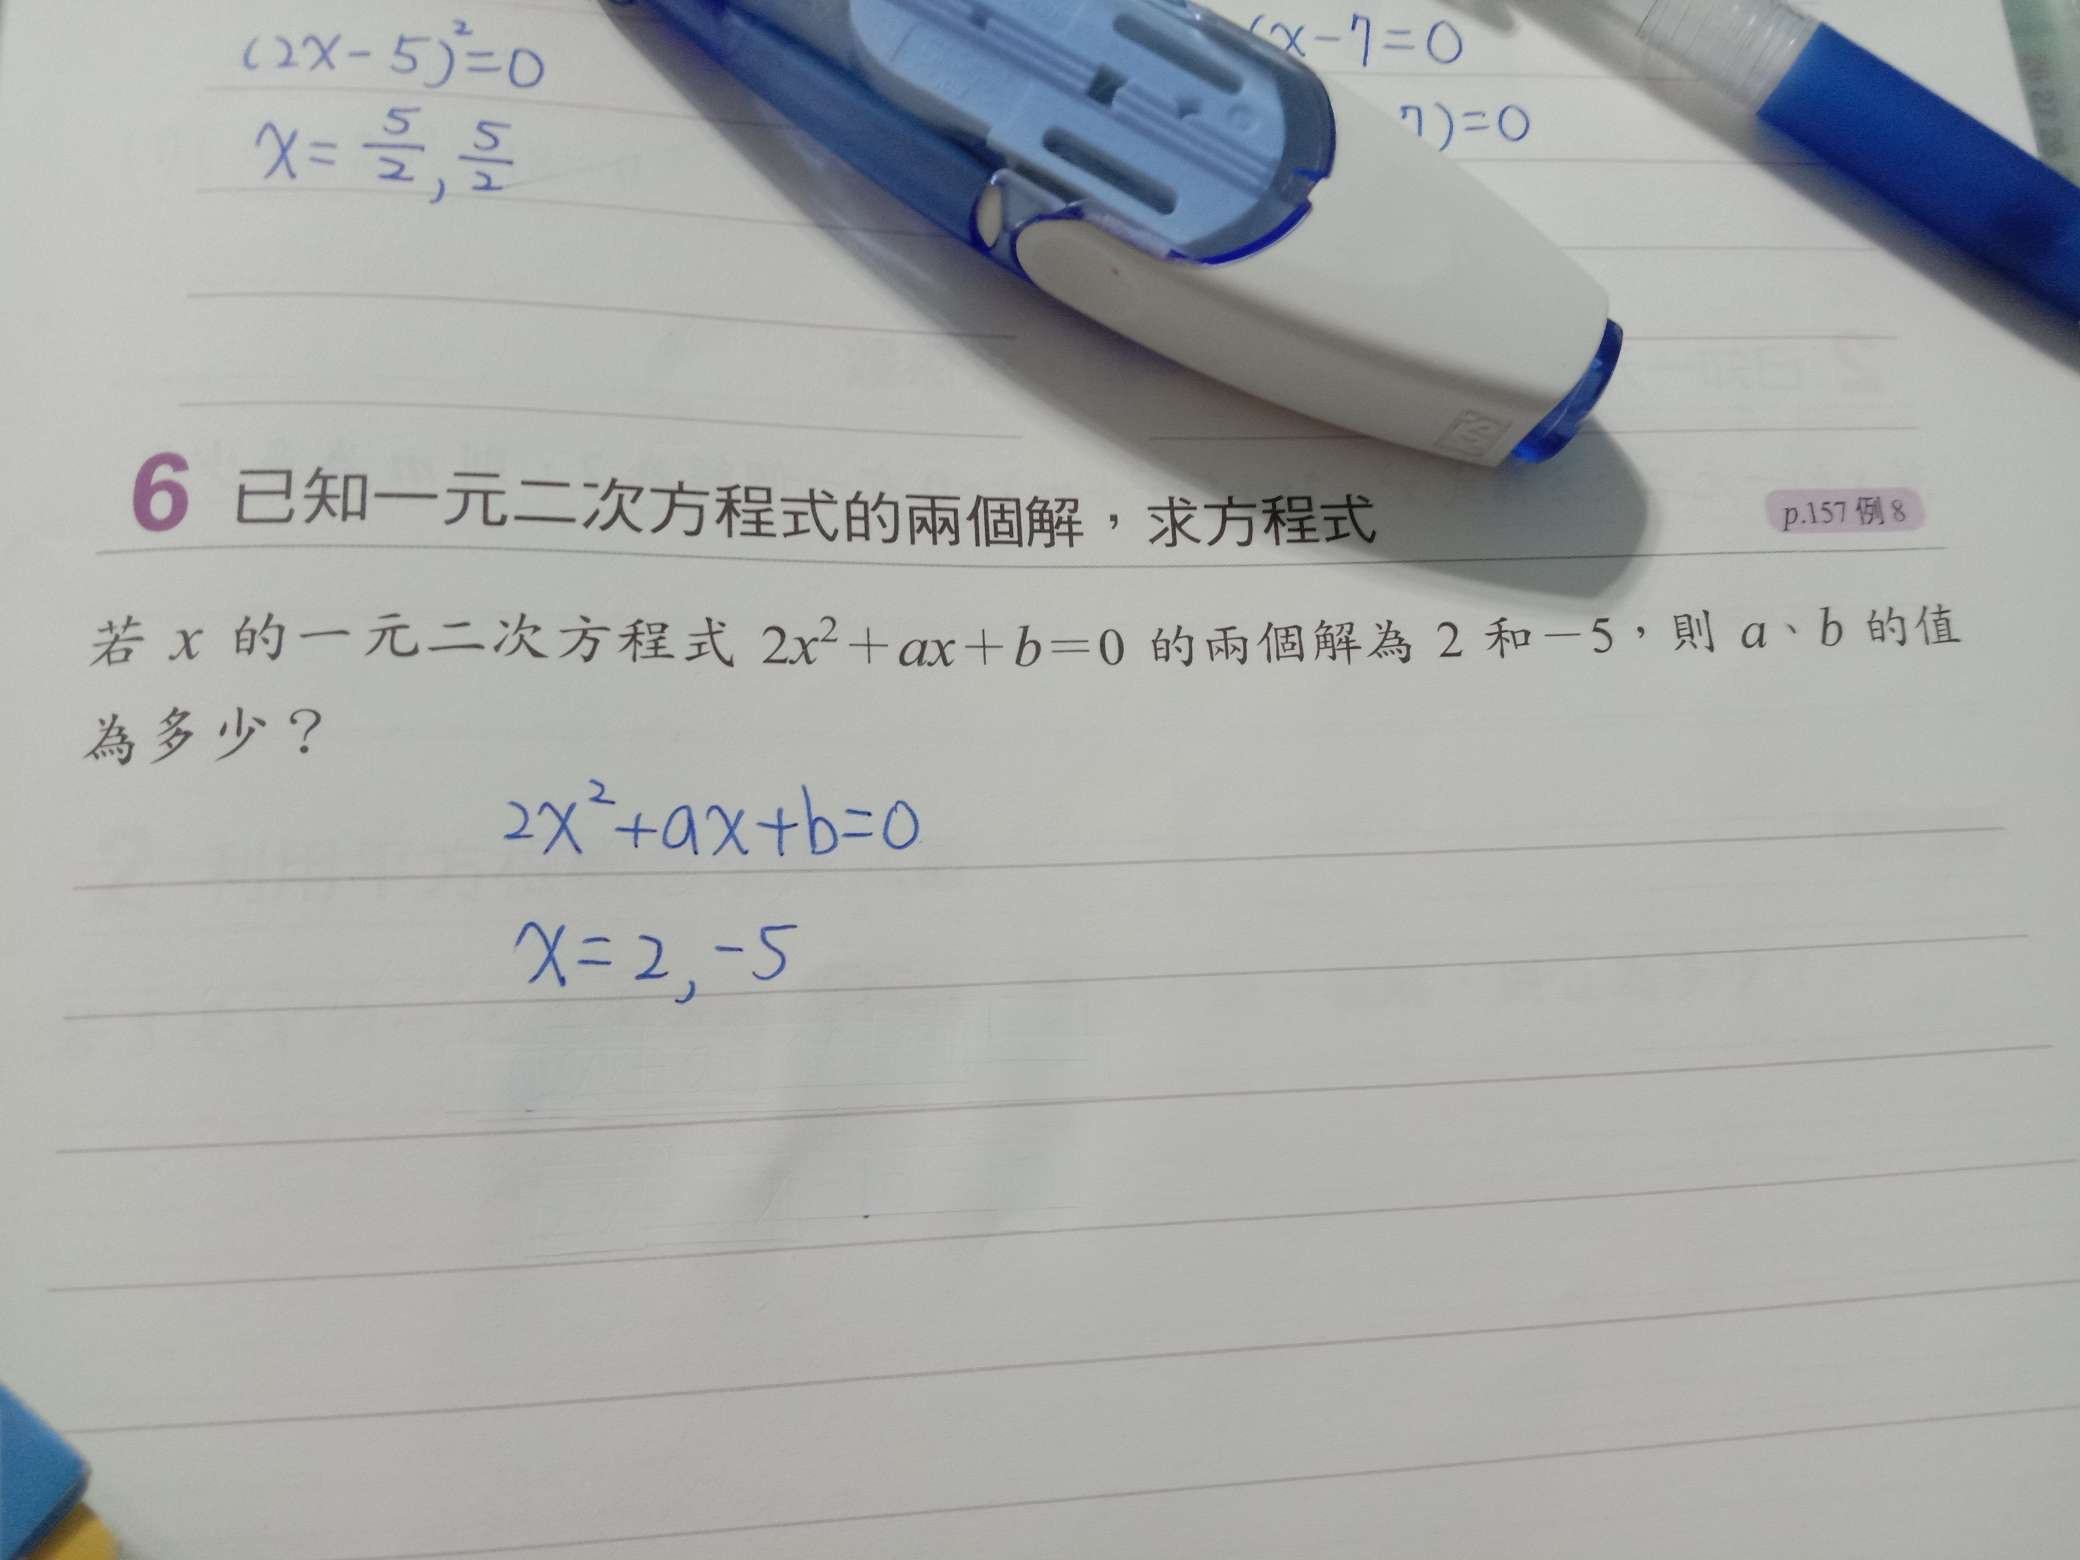 (2x-5)²=0
x-7=0
x=5/2, 5/2
7)=0
6 已知一元二次方程式的兩個解，求方程式
p.157 例 8
若 x 的一元二次方程式 2x²+ax+b=0 的兩個解為 2 和-5，則 a、b 的值
為多少？
2x²+ax+b=0
x=2,-5